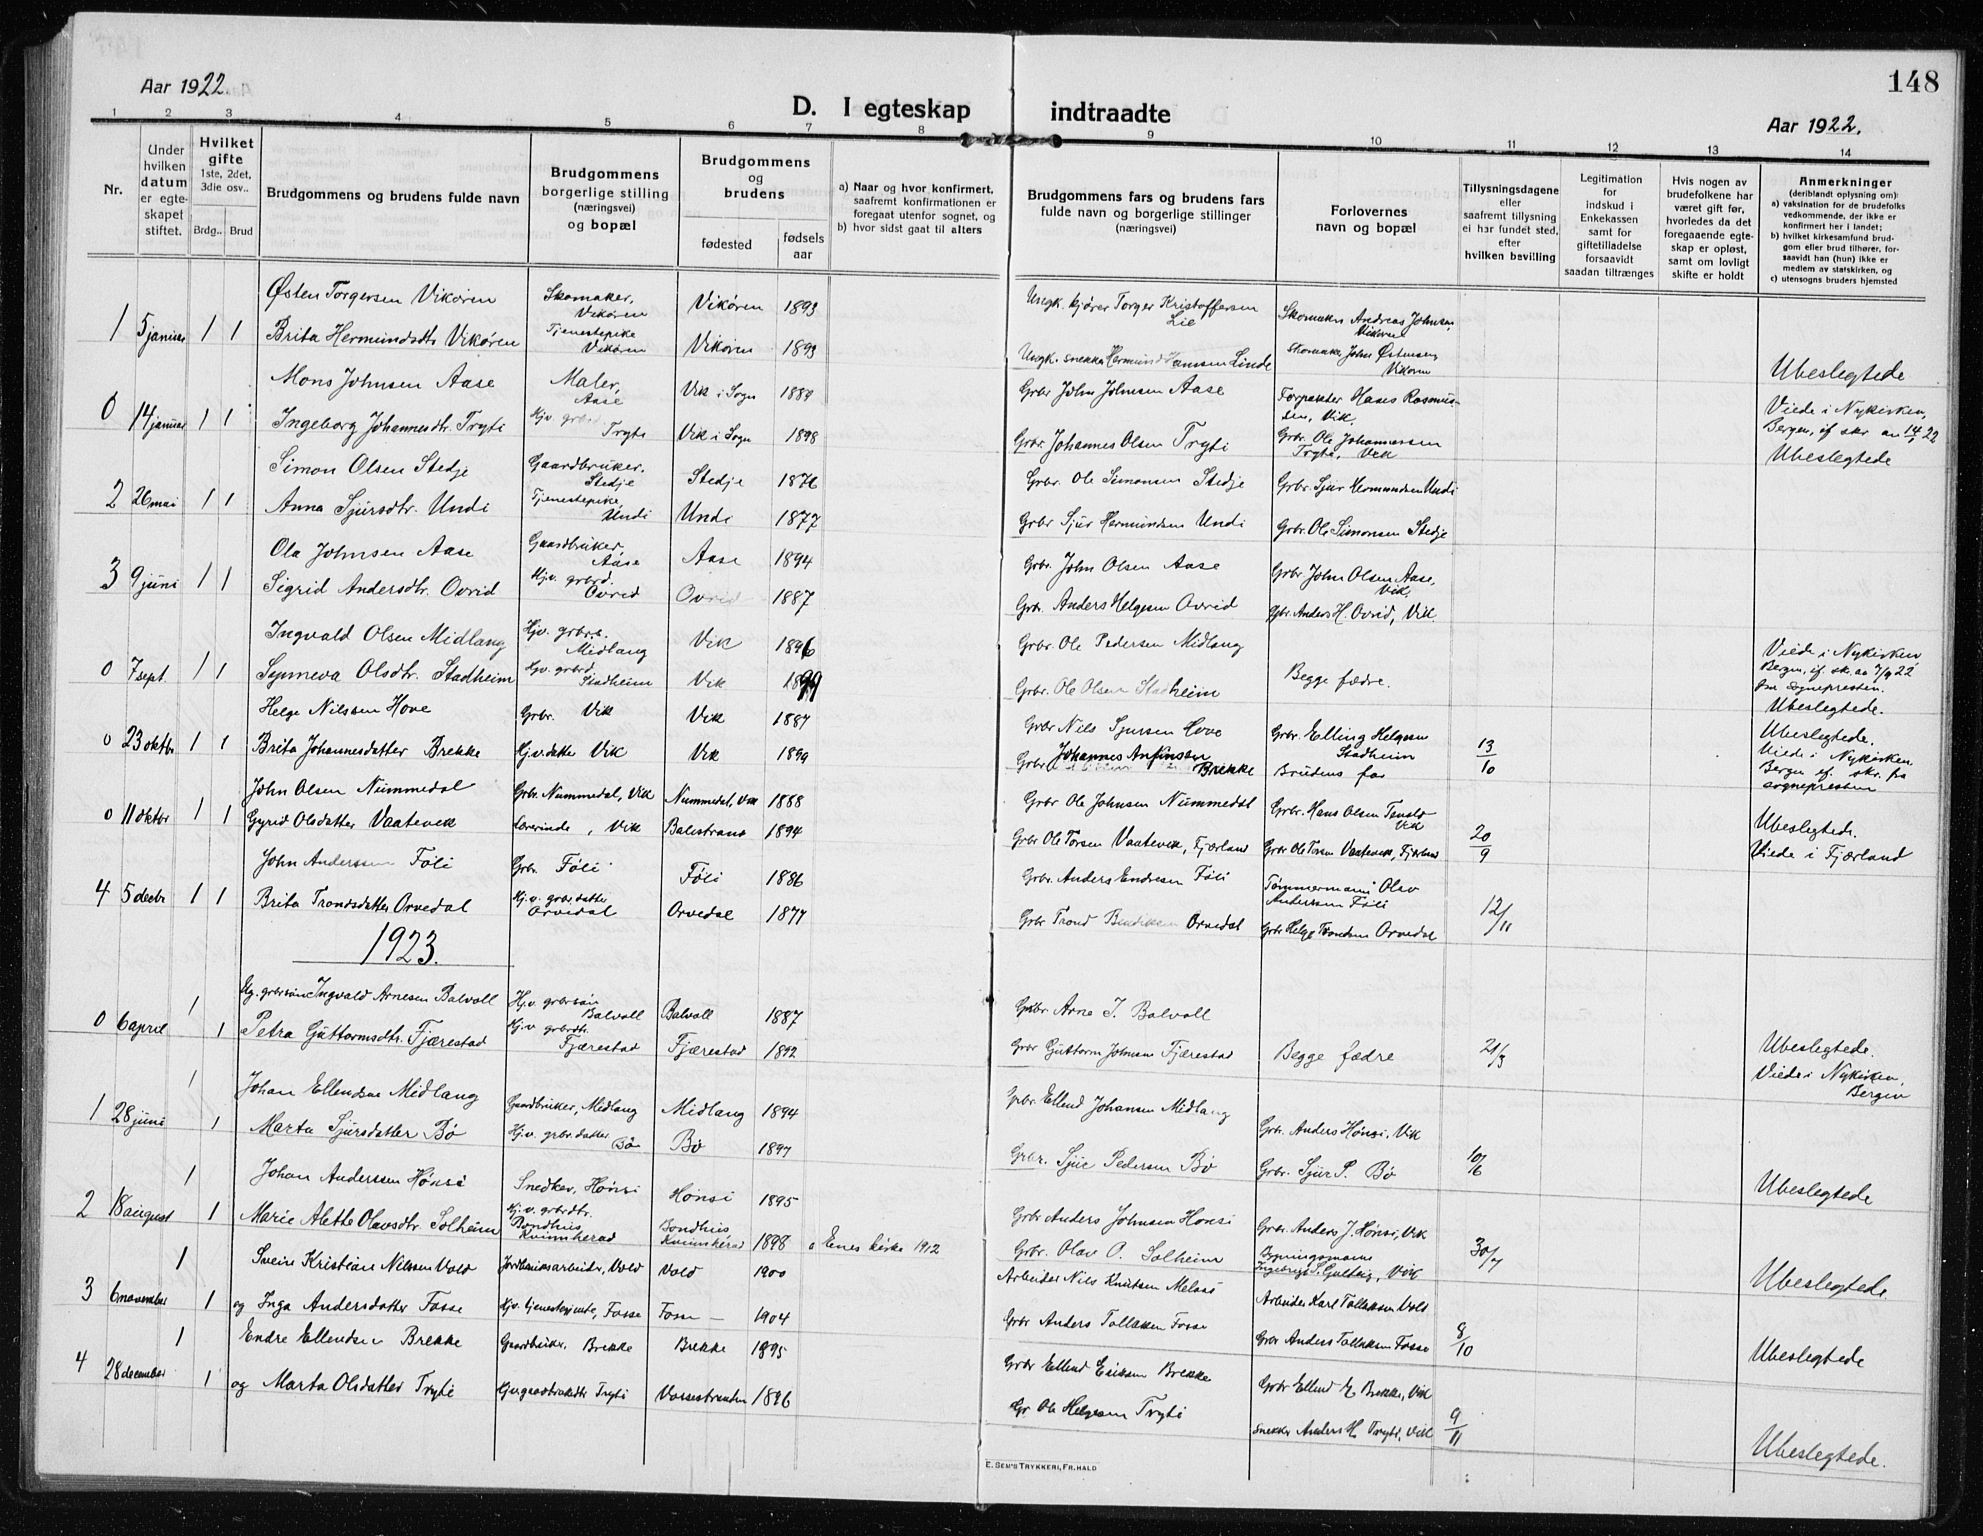 Aar 1922.
148
D. I egteskap indtraadte
Aar 1922.
1 2 3 4 5 6 7 8 9 10 11 12 13 14
Nr.
Under hvilken datum er egteskapet stiftet.
Hvilket gifte 1ste, 2det, 3die osv..
Brdg.. Brud
Brudgommens og brudens fulde navn
Brudgommens borgerlige stilling (næringsvei) og bopæl
Brudgommens og brudens
fødested
fødsels aar
a) Naar og hvor konfirmert, saafremt konfirmationen er foregaat utenfor sognet, og
b) hvor sidst gaat til alters
Brudgommens fars og brudens fars fulde navn og borgerlige stillinger (næringsvei)
Forlovernes navn og bopæl
Tillysningsdagene eller saafremt tillysning ei har fundet sted, efter hvilken bevilling
Legitimation for indskud i Enkekassen samt for giftetilladelse forsaavidt saadan tiltrænges
Hvis nogen av brudefolkene har været gift før, hvorledes da det foregaaende egteskap er opløst, samt om lovligt skifte er holdt
Anmerkninger (deriblandt oplysning om):
a) vaksination for de brudefolks vedkommende, der ikke er konfirmert her i landet;
b) hvilket kirkesamfund brudgom eller brud tilhører, forsaavidt han (hun) ikke er medlem av statskirken, og
c) utensogns bruders hjemsted
Østen Torgersen Vikøren Skomaker, Vikøren Vikøren 1893 Ungk. kjører Torger Kristoffersen Lie Skomaker Andreas Johnsen, Vikøren
1 5 januar 1 1 Brita Hermundsdtr Vikøren Tjenestepike Vikøren Vikøren 1893 Ungk. snekker Hermund Hansen Linde Skomaker John Østensen, Vikøren Ubeslegtede
Mons Johnsen Aase Maler, Aase Vik i Sogn 1889 Grbr John Johnsen Aase Forpakter Hans Rasmussen, Vik. Viede i Nykirken, Bergen, if skr an 14/1 22
0 14 januar 1 1 Ingeborg Johannesdtr. Tryti Hjv. grbrd Tryti Vik i Sogn 1898 Grbr. Johannes Olsen Tryti Grbr. Ole Johannessen Tryti, Vik Ubeslegtede
Simon Olsen Stedje Gaardbruker. Stedje Stedje 1876 Grbr. Ole Simonsen Stedje Grbr. Sjur Hermundsen Undi
2 26 mai 1 1 Anna Sjursdtr. Undi Tjenestepike, Undi Undi 1877 Grbr Sjur Hermundsen Undi Grbr. Ole Simonsen Stedje
Ola Johnsen Aase Gaardbruker, Aase Aase 1894 Grbr. John Olsen Aase Grbr John Olsen Aase, Vik.
3 9 juni 1 1 Sigrid Andersdtr. Ovrid Hjv. grbrd. Ovrid Ovrid 1887 Grbr. Anders Helgesen Ovrid Gbr. Anders H. Ovrid, Vik.
Ingvald Olsen Midlang Hjv. grbrs. Midlang Vik 1896 Grbr. Ole Pedersen Midlang Viede i Nykirken Bergen, if. skr. av 7/9 22 fra sognepresten.
0 7 sept. 1 1 Synneva Olsdtr. Stadheim Hjv. grbrd. Stadheim Vik 1899 Grbr. Ole Olsen Stadheim Begge fædre. Ubeslegtede.
Helge Nilssen Hove Grbr. Vik Vik 1887 Grbr Nils Sjursen Hove Grbr. Elling Helgesen Stadheim 13/10 Ubeslegtede.
0 23 oktbr 1 1 Brita Johannesdatter Brekke Hjv. datter Vik Vik 1899 Grbr Johannes Anfinsen Brekke Brudens far Viede i Nykirken Bergen if. skr. fra sognepresten
John Olsen Nummedal Grbr. Nummedal, Vik Nummedal, Vik 1888 Grbr Ole Johnsen Nummedal Grbr. Hans Olsen Tenslo Vik Ubeslegtede.
0 11 oktbr 1 1 Gyrid Olsdatter Vaatevik Lærerinde, Vik Balestrand 1894 Grbr Ole Torsen Vaatevik, Fjærland Grbr Ole Torsen Vaatevik, Fjærland 20/9 Viede i Fjærland
John Anderssen Føli Grbr. Føli Føli 1886 Grbr. Anders Endresen Føli Tømmermann Olav Anderssen Føli
4 5 decbr 1 1 Brita Trondsdatter Orvedal Hj.v. grbr. datter Orvedal Orvedal 1877 Grbr Trond Bendiksen Orvedal Grbr Helge Trondsen Orvedal 12/11
1923.
Ug. grbrsøn Ingvald Arnesen Balvoll Hj.v. grbrsøn Balvoll Balvoll 1887 Grbr. Arne I. Balvoll
0 6 april 1 1 Petra Guttormsdtr. Fjærestad Hj.v grbrdtr. Fjærestad Fjærestad 1892 Grbr Guttorm Johnsen Fjærestad Begge fædre 21/3 Ubeslegtede. Viede i Nykirken, Bergen
Johan Ellendsen Midlang Gaardbruker, Midlang Midlang 1894 Grbr. Ellend Johansen Midlang Grbr. Anders Hønsi, Vik
1 28 juni 1 1 Marta Sjursdatter Bø Hj.v. grbr. datter Bø Bø 1897 Grbr. Sjur Pedersen Bø Grbr. Sjur P. Bø 10/6 Ubeslegtede
Johan Anderssen Hønsi Snedker, Hønsi Hønsi 1895 Grbr Anders Johnsen Hønsi Grbr. Anders J. Hønsi, Vik
2 18 august 1 1 Marie Alette Olavsdtr. Solheim Hj.v. grbrdtr. Bondhus Kvinnherad Bondhus Kvinnherad 1898 Enes kirke 1912 Grbr. Olav O. Solheim 30/7 Ubeslegtede
Svein Kristian Nilssen Vold Jordbruksarbeider, Vold Vold 1900 Arbeider Nils Knutsen Arbeider Karl Tollaksen Vold
3 6 november 1 1 og Inga Andersdatter Fosse Hjv. tjenestejente, Fosse Fosse – 1904 Grbr Anders Tollaksen Fosse Grbr Anders Tollaksen Fosse 8/10 Ubeslegtede
Endre Ellendsen Brekke Gaardbruker, Brekke Brekke 1895 Grbr Ellend Eriksen Brekke Grbr Ellend E Brekke, Vik
4 28 december 1 1 og Marta Olsdatter Tryti Tryti Vossestranden 1896 Gr Ole Helgesen Tryti Snekker Anders H. Tryti, Vik 9/11 Ubeslegtede.
E. SEM'S TRYKKERI, FR.HALD